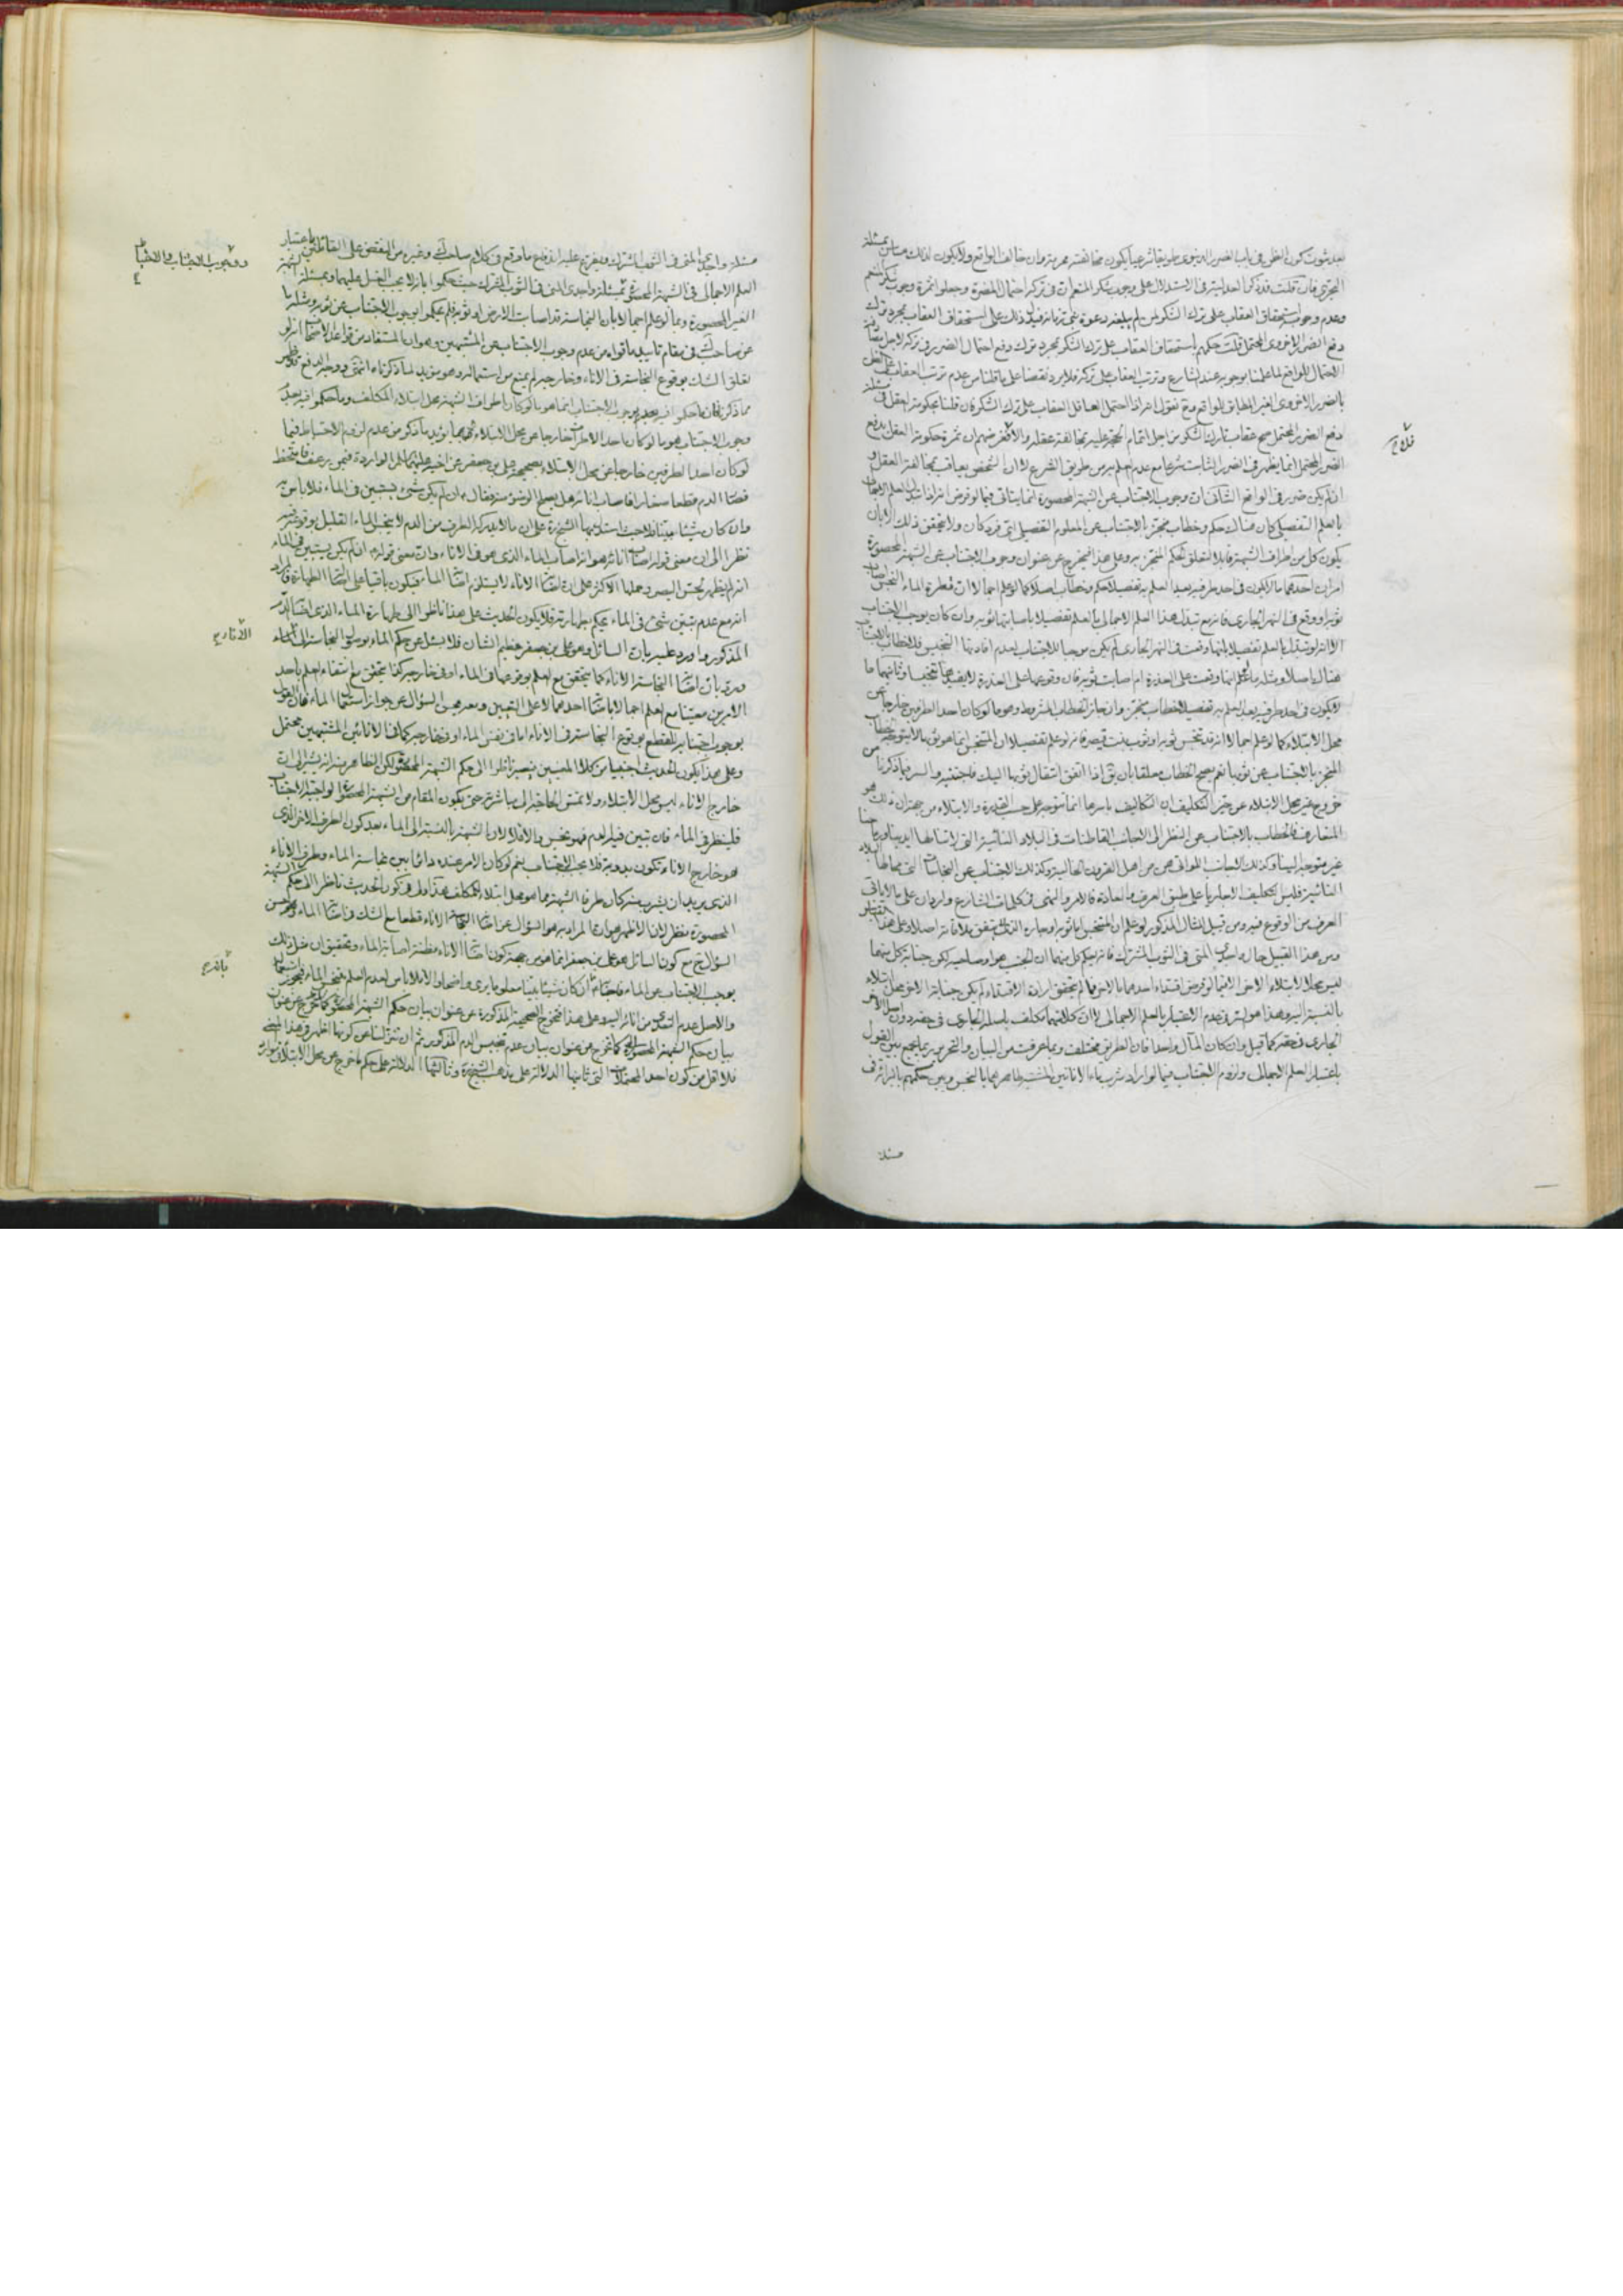 بعد ثبوت كون الظن فى باب الضرر الدنيوى طريقا شرعيا يكون مخالفته محرمة وان خالف الواقع ولا يكون كذلك
التجرى فان قلت قد ذكرنا لعدليته فى الاستدلال على وجوب شكر المنعم ان فى تركه احتمال المضرة وجعلوا ثمرة وجوب شكر المنعم
وعدم وجوبه استحقاق العقاب على ترك الشكر لمن لم يبلغه دعوة نبى زمانه فيدل ذلك على استحقاق العقاب بمجرد ترك
دفع الضرر الاخروى المحتمل قلت حكمهم باستحقاق العقاب على ترك الشكر بمجرد ترك دفع احتمال الضرر فى تركه لاجل
الاحتمال للواقع لما علمنا بوجوبه عند الشارع وترتب العقاب على تركه فلا يرد نقضا على ما قلنا من عدم ترتب العقاب على
بالضرر الاخروى الغير المطابق للواقع وح نقول مراد احتمل العاقل العقاب على ترك الشكر فان قلنا بحكومة العقل فى مسئلة
دفع الضرر المحتمل صح عقاب تارك الشكر من اجل اتمام الحجة عليه بمخالفة عقله والا فلا فغرضهم ان ثمرة حكومة العقل بدفع
الضرر المحتمل انما يظهر فى الضرر الثابت شرعا مع عدم العلم به من طريق الشرع لا ان الشخص يعاقب بمخالفة العقل و
ان لم يكن ضرر فى الواقع الثالث ان وجوب الاجتناب عن الشبهة المحصورة انما يتأتى فيما لو فرض انه اذا تبدل العلم الاجمالى
بالعلم التفصيلى كان هناك حكم وخطاب منجز بالاجتناب عن المعلوم التفصيلى اى فرد كان ولا يتحقق ذلك الا بان
يكون كل من اطراف الشبهة قابلا لتعلق الحكم المنجز به وعلى هذا فيخرج عن عنوان وجوب الاجتناب عن الشبهة المحصورة
امران احدهما ما لا يكون فى احد طرفيه بعد العلم به تفصيلا حكم وخطاب اصلا كما لو علم اجمالا ان قطرة الماء النجس اصاب
ثوبه او وقع فى النهر الجارى فانه مع تبدل هذا العلم الاجمالى بالعلم تفصيلا باصابتها ثوبه وان كان يوجب الاجتناب
الا انه لو تبدل بالعلم تفصيلا بانها وقعت فى النهر الجارى لم يكن موجبا للاجتناب لعدم افادتها التنجيس فلا خطاب بالاجتناب
هناك اصلا ومثله ما لو علم انها وقعت على العذرة ام اصابت ثوبه فان وقوعها على العذرة لا يفيدها تنجسا وثانيهما ما
لا يكون فى احد طرفيه بعد العلم به تفصيلا خطاب منجز وان جاز الخطاب المشروط وهو ما لو كان احد الطرفين خارجا عن
محل الابتلاء كما لو علم اجمالا انه قد تنجس ثوبه او ثوب بنت قيصر فانه لو علم تفصيلا ان المتنجس انما هو ثوبها لا يتوجه اليه خطاب
المنجز بالاجتناب عن ثوبها نعم يصح الخطاب معلقا بان يق اذا اتفق انتقال ثوبها اليك فاجتنبه والسر فيما ذكرنا من
خروج غير محل الابتلاء عن حيز التكليف ان التكاليف باسرها انما تتوجه على حسب القدرة والابتلاء من جهة ان ذلك هو
المتعارف فالخطاب بالاجتناب عن النظر الى الاجانب القاطنات فى البلاد النائية التى لا تناطها ايدينا وارجلنا
غير متوجه الينا وكذلك الاجانب اللواتى هن من اهل القرون الخالية وكذلك الاجتناب عن النجاسات التى محالها البلاد
النائية فليس التكليف الا جاريا على طبق العرف والعادة فالامر والنهى فى كلمات الشارع واردان على ما لا يأبى
العرف من الوقوع فيه ومن قبيل المثال المذكور لو علم ان المتنجس اما ثوبه او جاره الذى لا يتفق ملاقاته اصلا وعلى هذا فقيل
ومن هذا القبيل حال واجدى المنى فى الثوب المشترك فانه يحكم كل منهما ان الجنب هو او صاحبه لكن جنابة كل منهما
ليس محلا لابتلاء الاخر الا فيما لو فرض اقتداء احدهما بالاخر فما لم يتحقق ارادة الاقتداء لم يكن جنابة الاخر محل ابتلاء
بالنسبة اليه وهذا هو السر فى عدم الاعتبار بالعلم الاجمالى لا ان كلا منهما مكلف باصله الجارى فى حقه دون اصل الاخر
الجارى فى حقه كما قيل وان كان المآل واحدا فان الطريق مختلف وبما عرفت من البيان والتحرير ربما يجمع بين القول
باعتبار العلم الاجمالى ولزوم الاجتناب فيما لو اراد شرب ماء الانائين المشتبه طاهرهما بالنجس وبين حكمهم بالبرائة فى
فلا ح
مسئلة
مسئلة واجدى المنى فى الثوب المشترك ويتفرع عليه اندفاع ما وقع فى كلام صاحب ك وغيره من النقض على القائلين باعتبار
العلم الاجمالى فى الشبهة المحصورة بمسئلة واجدى المنى فى الثوب المشترك حيث حكموا بانه لا يجب الغسل عليهما وبمسئلة الشبهة
الغير المحصورة وبما لو علم اجمالا بان النجاسة قد اصابت الارض او ثوبه فلم يحكموا بوجوب الاجتناب عن ثوبه ومثله ما
عن صاحب ك فى مقام تأييد ما قواه من عدم وجوب الاجتناب عن المشتبهين وهو ان المستفاد من قواعد الاصحاب انه لو
تعلق الشك بوقوع النجاسة فى الاناء وخارجه لم يمنع من استعماله وهو مؤيد لما ذكرناه انتهى ووجه الدفع قد ظهر
مما ذكرنا فان ما حكموا فيه بعدم وجوب الاجتناب انما هو ما لو كان اطراف الشبهة محل ابتلاء المكلف وما حكموا فيه بعدم
وجوب الاجتناب هو ما لو كان احد الاطراف خارجا عن محل الابتلاء ثم مما يؤيد ما ذكر من عدم لزوم الاحتياط فيما
لو كان احد الطرفين خارجا عن محل الابتلاء صحيحة على بن جعفر عن اخيه عليهما السلام الواردة فيمن رعف فامتخط
فصار الدم قطعا صغارا فاصاب اناءه هل يصلح الوضوء منه فقال ع ان لم يكن شئ يستبين فى الماء فلا باس به
وان كان شيئا بينا فلا حيث استدل بها الشيخ ره على ان ما لا يدركه الطرف من الدم لا ينجس الماء القليل بوقوعه فيه
نظرا الى ان معنى قوله اصاب اناءه هو انه اصاب الماء الذى هو فى الاناء وان معنى قوله ع ان لم يكن يستبين فى الماء
انه لم يظهر بحس البصر وحملها الاكثر على ان اصابة الاناء لا يستلزم اصابة الماء فيكون باقيا على اصالة الطهارة فالمراد
انه مع عدم تبين شئ فى الماء يحكم بطهارته فلا يكون الحديث على هذا ناظرا الى طهارة الماء الذى اصابه الدم
المذكور واورد عليه بان السائل وهو على بن جعفر عظيم الشان فلا يسئل عن حكم الماء بوصول النجاسة الى الاناء
ورد بان اصابة النجاسة الاناء كما يتحقق مع العلم بوقوعها فى الماء او فى خارجه كذا يتحقق مع انتفاء العلم باحد
الامرين معينا مع العلم اجمالا باصابة احدهما لا على التعيين ومعه يحسن السؤال عن جواز استعمال الماء فان القول
بوجوب اجتنابه للقطع بوقوع النجاسة فى الاناء اما فى نفس الماء او فى خارجه كما فى الانائين المشتبهين محتمل
وعلى هذا يكون الحديث اجنبيا من كلا المعنيين فيصير ناظرا الى حكم الشبهة المحصورة لكن الظاهر منه انه يشير الى ان
خارج الاناء ليس محل الابتلاء ولا تمس الحاجة الى مباشرته حتى يكون المقام من الشبهة المحصورة الواجبة الاجتناب
فلينظر فى الماء فان تبين فيه الدم فهو نجس والا فلا لان الشبهة بالنسبة الى الماء بعد كون الطرف الاخر الذى
هو خارج الاناء تكون بدوية فلا يجب الاجتناب نعم لو كان الامر عنده دائرا بين نجاسة الماء وطرف الاناء
الذى يريد ان يشرب منه كان طرفا الشبهة مما هو محل ابتلاء المكلف هذا ولكن كون الحديث ناظرا الى حكم الشبهة
المحصورة منظر لان الاظهر هو ان المراد به هو السؤال عن اصابة النجاسة الاناء قطعا مع الشك فى اصابة الماء وحسن
السؤال ح مع كون السائل هو على بن جعفر انما هو من جهة كون اصابة الاناء مظنة اصابة الماء وتحقيق ان مثل ذلك
يوجب الاجتناب عن الماء فاجابه ع ان كان شيئا بينا معلوما يرى واضحا والا فلا باس لعدم العلم بنجس الماء فيجوز استعماله
والاصل عدم التعدى من اناءه اليه وعلى هذا فتخرج الصحيحة المذكورة عن عنوان بيان حكم الشبهة المحصورة كما تخرج عن عنوان
بيان حكم الشبهة المحصورة كما تخرج عن عنوان بيان عدم تنجيس الدم المذكور ثم ان تنزلنا عن كونها اظهر فى هذا المعنى
فلا اقل من كون احد المحتملات التى ثانيها الدلالة على مذهب الشيخ ره وثالثها الدلالة على حكم ما خرج عن محل الابتلاء
ووجوب الاجتناب فى
الاناء ح